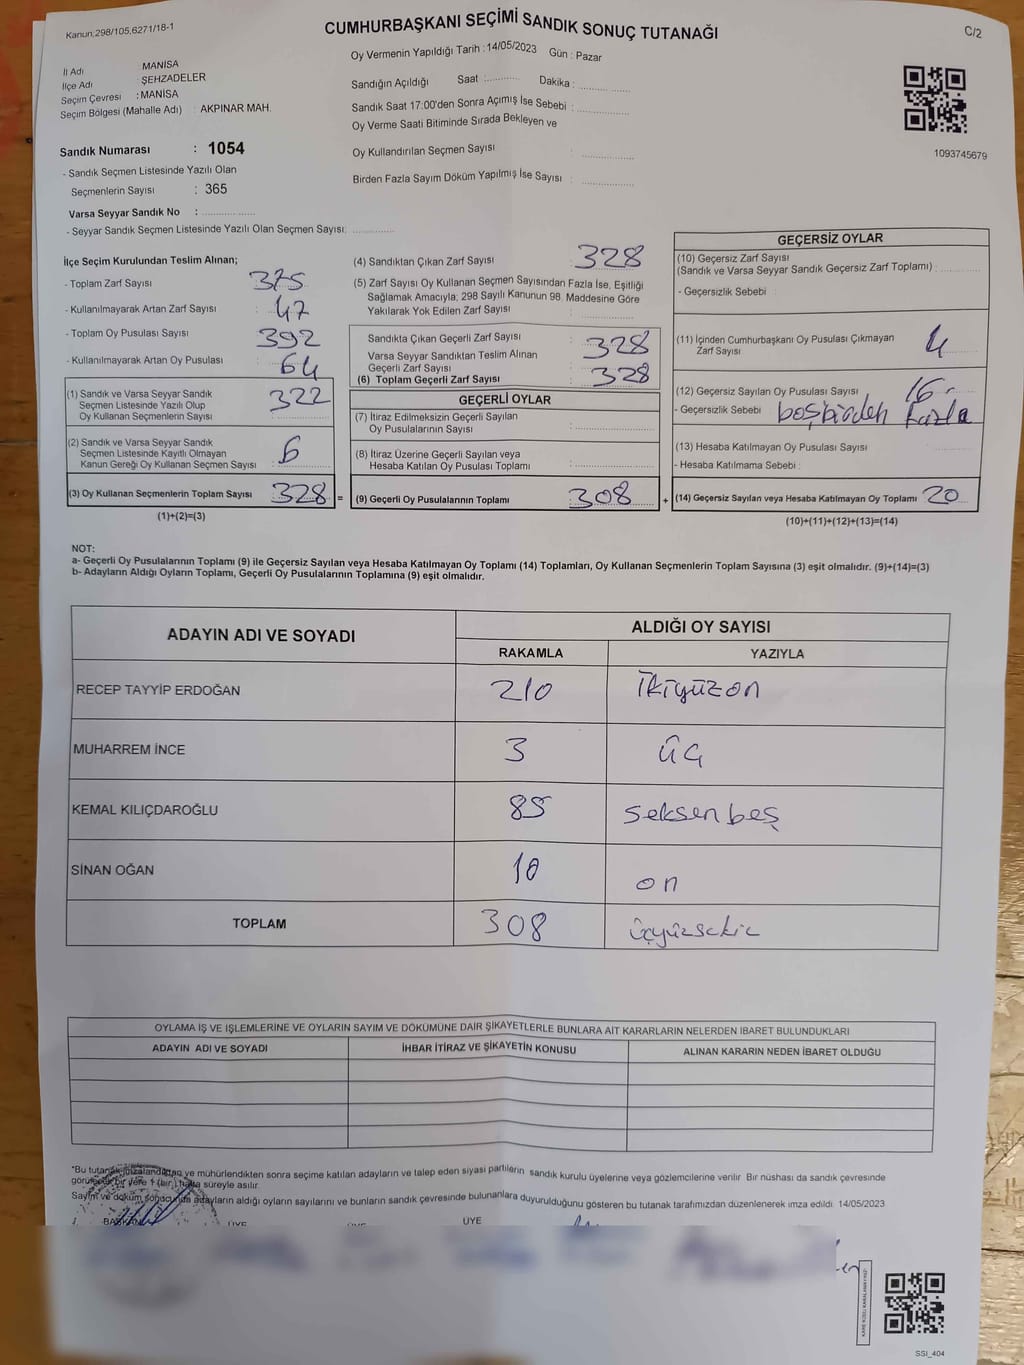 Kanun,298/105,6271/18-1
CUMHURBAŞKANI SEÇİMİ SANDIK SONUÇ TUTANAĞI
C/2
İl Adı MANİSA
İlçe Adı ŞEHZADELER
Seçim Çevresi : MANİSA
Seçim Bölgesi (Mahalle Adı) AKPINAR MAH.
Sandık Numarası : 1054
- Sandık Seçmen Listesinde Yazılı Olan
Seçmenlerin Sayısı : 365
Varsa Seyyar Sandık No :
- Seyyar Sandık Seçmen Listesinde Yazılı Olan Seçmen Sayısı:
Oy Vermenin Yapıldığı Tarih : 14/05/2023 Gün : Pazar
Sandığın Açıldığı Saat : Dakika :
Sandık Saat 17:00'den Sonra Açımış İse Sebebi :
Oy Verme Saati Bitiminde Sırada Bekleyen ve
Oy Kullandırılan Seçmen Sayısı :
Birden Fazla Sayım Döküm Yapılmış İse Sayısı :
1093745679
İlçe Seçim Kurulundan Teslim Alınan;
- Toplam Zarf Sayısı : 375
- Kullanılmayarak Artan Zarf Sayısı : 47
- Toplam Oy Pusulası Sayısı : 392
- Kullanılmayarak Artan Oy Pusulası : 64
(1) Sandık ve Varsa Seyyar Sandık
Seçmen Listesinde Yazılı Olup
Oy Kullanan Seçmenlerin Sayısı : 322
(2) Sandık ve Varsa Seyyar Sandık
Seçmen Listesinde Kayıtlı Olmayan
Kanun Gereği Oy Kullanan Seçmen Sayısı : 6
(3) Oy Kullanan Seçmenlerin Toplam Sayısı : 328 =
(1)+(2)=(3)
(4) Sandıktan Çıkan Zarf Sayısı : 328
(5) Zarf Sayısı Oy Kullanan Seçmen Sayısından Fazla İse, Eşitliği
Sağlamak Amacıyla; 298 Sayılı Kanunun 98. Maddesine Göre
Yakılarak Yok Edilen Zarf Sayısı :
Sandıkta Çıkan Geçerli Zarf Sayısı : 328
Varsa Seyyar Sandıktan Teslim Alınan
Geçerli Zarf Sayısı :
(6) Toplam Geçerli Zarf Sayısı : 328
GEÇERLİ OYLAR
(7) İtiraz Edilmeksizin Geçerli Sayılan
Oy Pusulalarının Sayısı :
(8) İtiraz Üzerine Geçerli Sayılan veya
Hesaba Katılan Oy Pusulası Toplamı :
(9) Geçerli Oy Pusulalarının Toplamı : 308 +
GEÇERSİZ OYLAR
(10) Geçersiz Zarf Sayısı
(Sandık ve Varsa Seyyar Sandık Geçersiz Zarf Toplamı) :
- Geçersizlik Sebebi :
(11) İçinden Cumhurbaşkanı Oy Pusulası Çıkmayan
Zarf Sayısı : 4
(12) Geçersiz Sayılan Oy Pusulası Sayısı : 16
- Geçersizlik Sebebi : boş birden fazla
(13) Hesaba Katılmayan Oy Pusulası Sayısı :
- Hesaba Katılmama Sebebi :
(14) Geçersiz Sayılan veya Hesaba Katılmayan Oy Toplamı : 20
(10)+(11)+(12)+(13)=(14)
NOT:
a- Geçerli Oy Pusulalarının Toplamı (9) ile Geçersiz Sayılan veya Hesaba Katılmayan Oy Toplamı (14) Toplamları, Oy Kullanan Seçmenlerin Toplam Sayısına (3) eşit olmalıdır. (9)+(14)=(3)
b- Adayların Aldığı Oyların Toplamı, Geçerli Oy Pusulalarının Toplamına (9) eşit olmalıdır.
ADAYIN ADI VE SOYADI ALDIĞI OY SAYISI
RAKAMLA YAZIYLA
RECEP TAYYİP ERDOĞAN 210 İkiyüzon
MUHARREM İNCE 3 üç
KEMAL KILIÇDAROĞLU 85 seksen beş
SİNAN OĞAN 10 on
TOPLAM 308 üçyüzsekiz
OYLAMA İŞ VE İŞLEMLERİNE VE OYLARIN SAYIM VE DÖKÜMÜNE DAİR ŞİKAYETLERLE BUNLARA AİT KARARLARIN NELERDEN İBARET BULUNDUKLARI
ADAYIN ADI VE SOYADI İHBAR İTİRAZ VE ŞİKAYETİN KONUSU ALINAN KARARIN NEDEN İBARET OLDUĞU
*Bu tutanak imzalandıktan ve mühürlendikten sonra seçime katılan adayların ve talep eden siyasi partilerin sandık kurulu üyelerine ve gözlemcilerine verilir. Bir nüshası da sandık çevresinde
görülecek bir yere 1 (bir) hafta süreyle asılır.
Sayım ve döküm sonucunda adayların aldığı oyların sayılarını ve bunların sandık çevresinde bulunanlara duyurulduğunu gösteren bu tutanak tarafımızdan düzenlenerek imza edildi. 14/05/2023
BAŞKAN ÜYE ÜYE ÜYE
KARE KODU KARALAMAYINIZ!
SSI_404